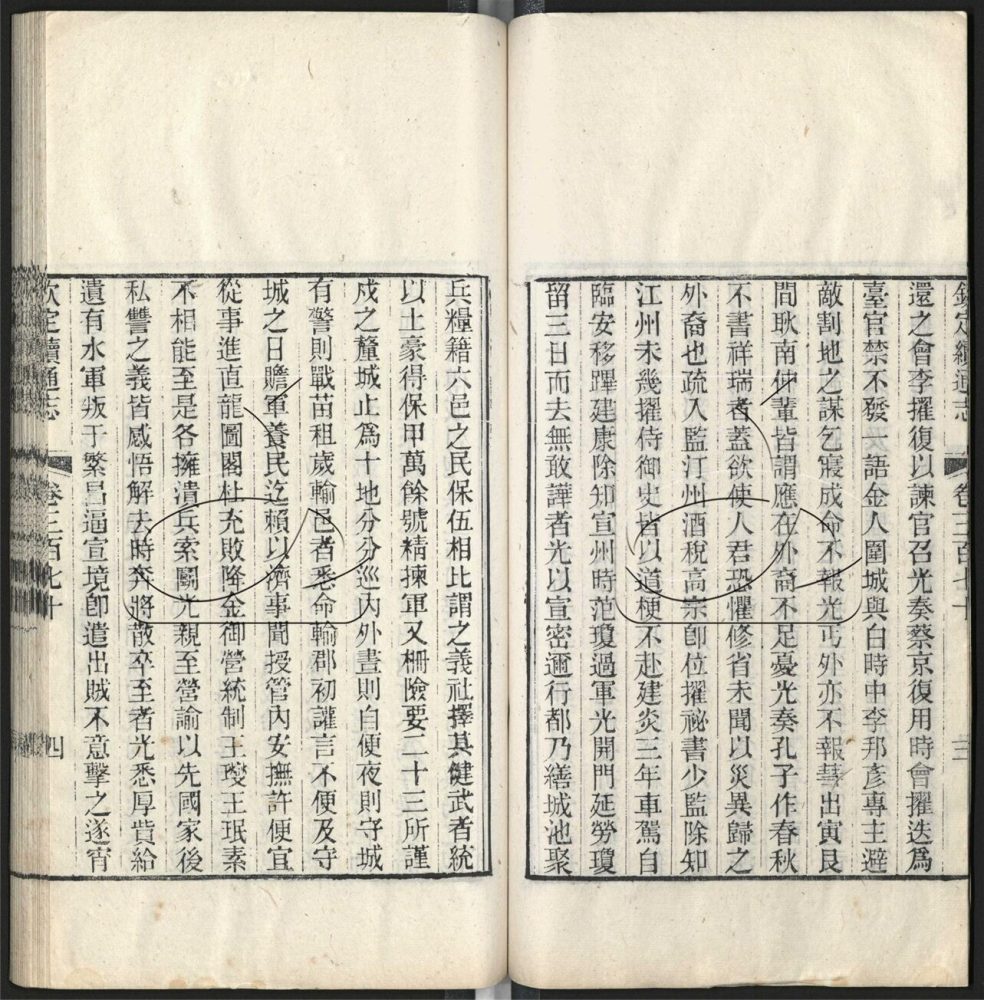 欽定續通志 卷三百七十 三
還之會李擢復以諫官召光奏蔡京復用時會擢迭爲
臺官禁不發一語金人圍城與白時中李邦彥專主避
敵割地之謀乞寢成命不報光丐外亦不報彗出寅艮
間耿南仲輩皆謂應在外裔不足憂光奏孔子作春秋
不書祥瑞者蓋欲使人君恐懼修省未聞以災異歸之
外裔也疏入監汀州酒稅高宗卽位擢祕書少監除知
江州未幾擢侍御史皆以道梗不赴建炎三年車駕自
臨安移蹕建康除知宣州時范瓊過軍光開門延勞瓊
留三日而去無敢譁者光以宣密邇行都乃繕城池聚
兵糧籍六邑之民保伍相比謂之義社擇其健武者統
以土豪得保甲萬餘號精揀軍又柵險要二十三所謹
戍之釐城止爲十地分分巡內外晝則自便夜則守城
有警則戰苗租歲輸邑者悉命輸郡初讙言不便及守
城之日贍軍養民迄賴以濟事聞授管內安撫許便宜
從事進直龍圖閣杜充敗降金御營統制王𤫉王珉素
不相能至是各擁潰兵索鬭光親至營諭以先國家後
私讐之義皆感悟解去時奔將散卒至者光悉厚貲給
遺有水軍叛于繁昌逼宣境卽遣出賊不意擊之遂宵
欽定續通志 卷三百七十 四